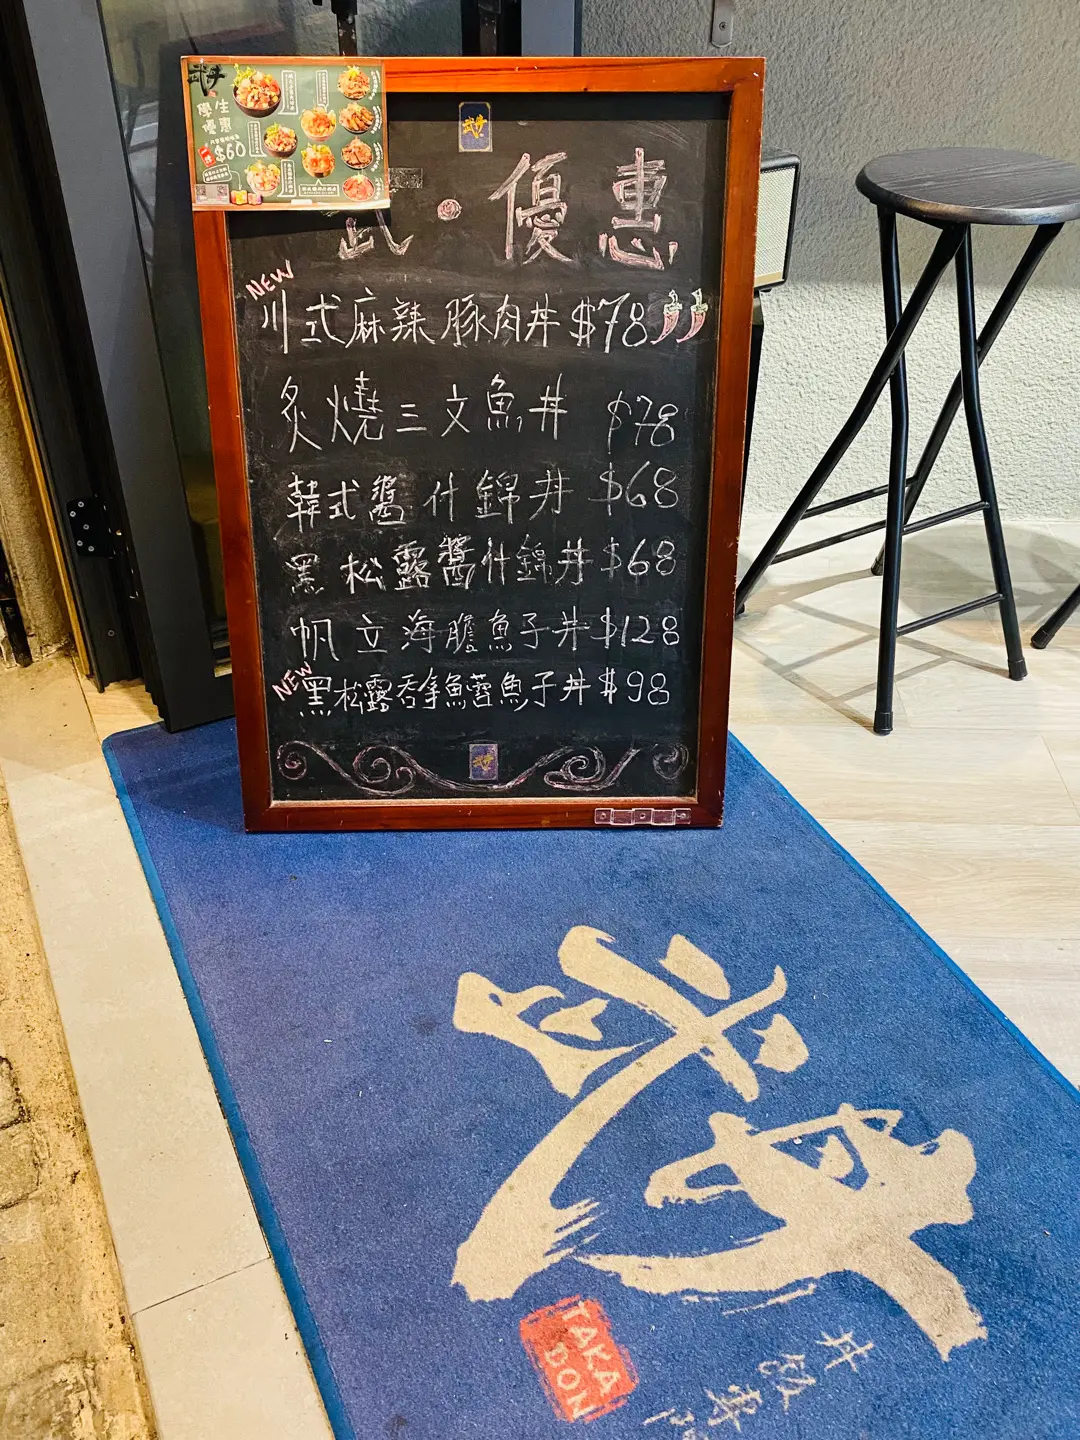 武丼
學生
優惠
$60
武丼
武・優惠
NEW
川式麻辣豚肉丼 $78
炙燒三文魚丼 $78
韓式醬什錦丼 $68
黑松露醬什錦丼 $68
帆立海膽魚子丼 $128
NEW
黑松露吞拿魚蓉魚子丼 $98
武丼
武丼
TAKA
DON
丼飯專門